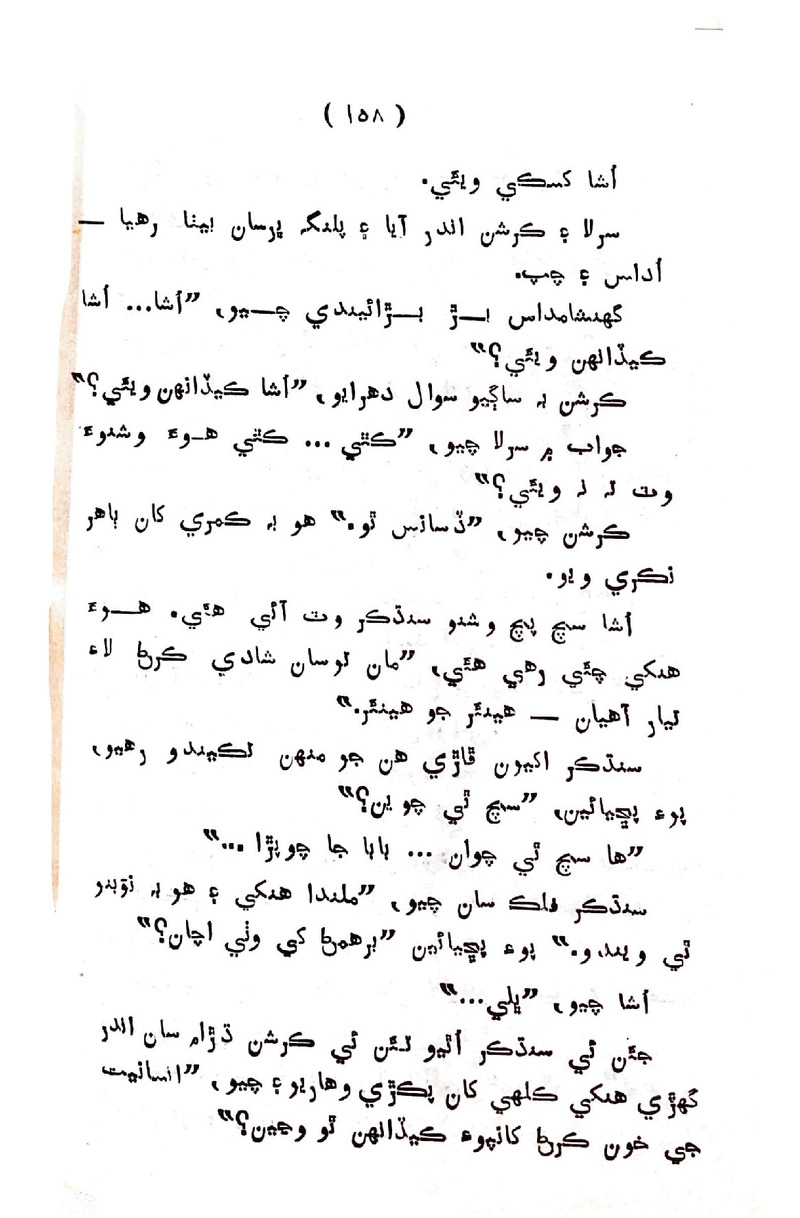 ( ١٥٨ )
اُشا کسڪي ويئي.
سرلا ۽ ڪرشن اندر آيا ۽ پلنگه ڀرسان بيٺا رهيا —
اُداس ۽ چپ.
گهنشامداس بــڙ بــڙائيندي چـــيو، ”اُشا... اُشا
ڪيڏانهن ويئي؟“
ڪرشن به ساڳيو سوال دهرايو، ”اُشا ڪيڏانهن ويئي؟“
جواب ۾ سرلا چيو، ”ڪٿي ... ڪٿي هــوءَ وشنوءَ
وٽ ته نه ويئي؟“
ڪرشن چيو، ”ڏسانس ٿو.“ هو به ڪمري کان ٻاهر
نڪري ويو.
اُشا سچ پچ وشنو سنڌڪر وٽ آئي هئي. هـــوءَ
هنکي چئي رهي هئي، ”مان توسان شادي ڪرڻ لاءِ
تيار آهيان — هينئر جو هينئر.“
سنڌڪر اکيون ڦاڙي هن جو منهن تڪيندو رهيو،
پوءِ پڇيائين، ”سچ ٿي چوين؟“
”ها سچ ٿي چوان ... بابا جا چوپڙا ...“
سنڌڪر ٺلڪ سان چيو، ”ملندا هنکي ۽ هو به نوَبنو
ٿي ويندو.“ پوءِ پڇيائين ”برهمڻ کي وٺي اچان؟“
اُشا چيو، ”ڀلي...“
جئن ئي سنڌڪر اُٿيو تئن ئي ڪرشن ڌڙام سان اندر
گهڙي هنکي ڪلهي کان پڪڙي وهاريو ۽ چيو، ”انسانيت
جي خون ڪرڻ کانپوءِ ڪيڏانهن ٿو وڃين؟“